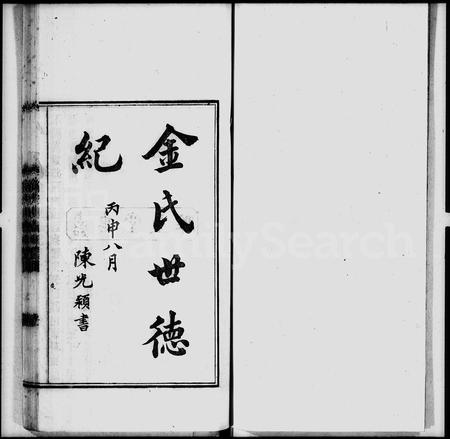 金氏世德
紀
丙申八月
陳光穎書
FamilySearch